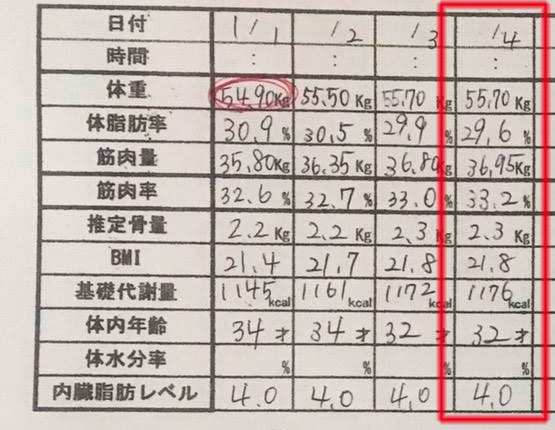 日付 1/1 /2 /3 /4
時間 : : : :
体重 54.90Kg 55.50Kg 55.70Kg 55.70Kg
体脂肪率 30.9% 30.5% 29.9% 29.6%
筋肉量 35.80Kg 36.35Kg 36.80Kg 36.95Kg
筋肉率 32.6% 32.7% 33.0% 33.2%
推定骨量 2.2Kg 2.2Kg 2.3Kg 2.3Kg
BMI 21.4 21.7 21.8 21.8
基礎代謝量 1145kcal 1161kcal 1172kcal 1176kcal
体内年齢 34才 34才 32才 32才
体水分率 % % % %
内臓脂肪レベル 4.0 4.0 4.0 4.0